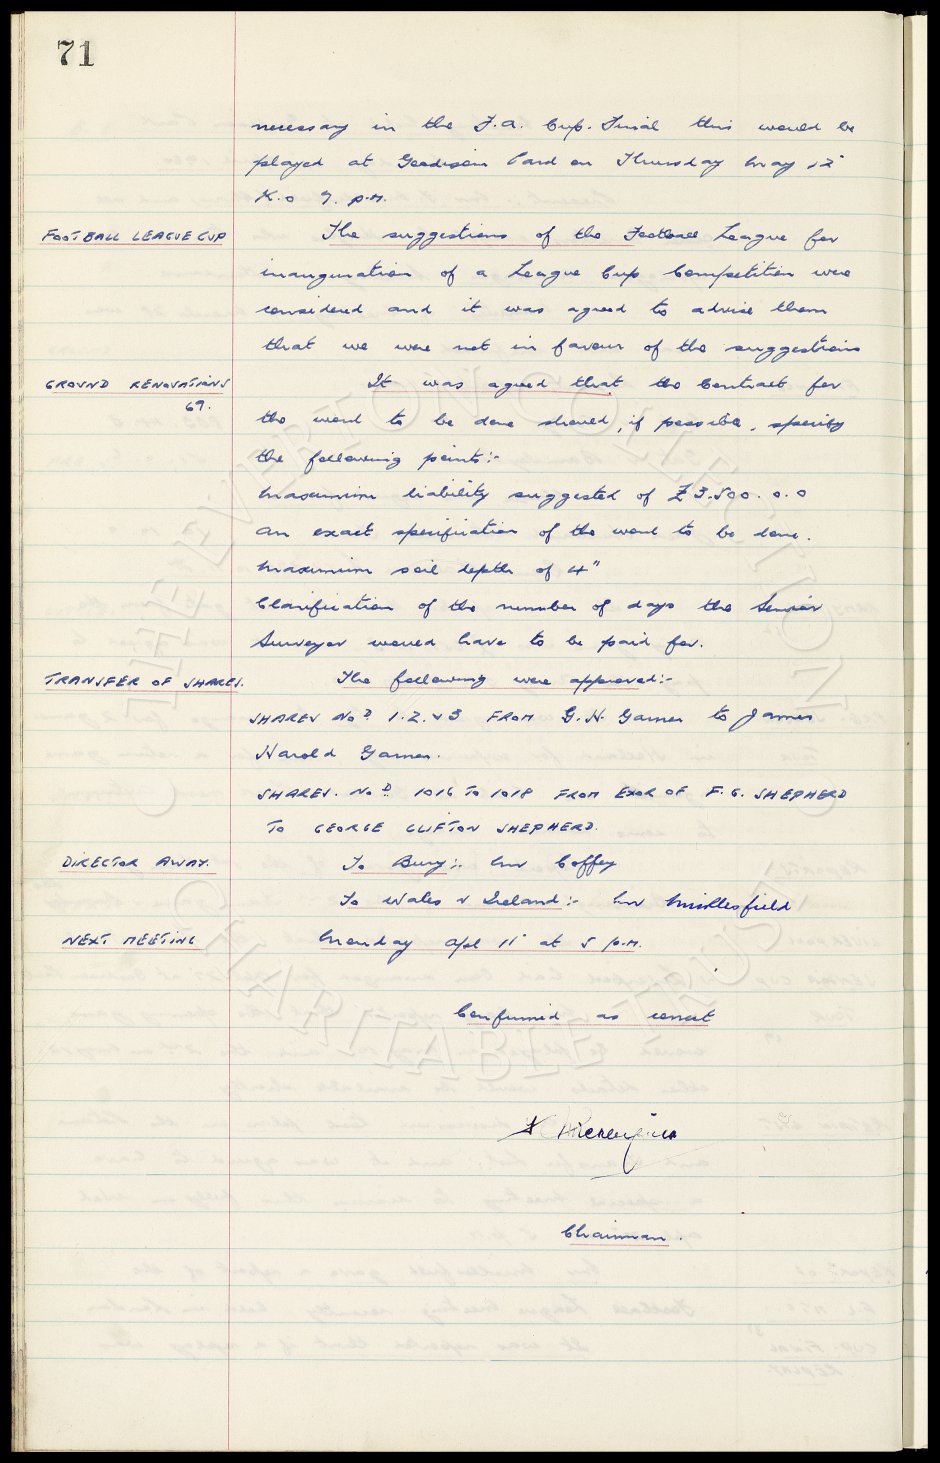 71
necessary in the F.A. Cup. Final this would be
played at Goodison Park on Thursday May 12
K.O 7. p.m.
FOOTBALL LEAGUE CUP The suggestions of the Football League for
inauguration of a League Cup Competition were
considered and it was agreed to advise them
that we were not in favour of the suggestions
GROUND RENOVATIONS It was agreed that the Contract for
69. the work to be done should, if possible, specify
the following points:-
Maximum liability suggested of £3.500.0.0
An exact specification of the work to be done.
Maximum soil depth of 4"
Clarification of the number of days the Senior
Surveyor would have to be paid for.
TRANSFER OF SHARES. The following were approved:-
SHARES NoD 1.2.& 3 FROM G.H. Garner to James
Harold Garner.
SHARES. NoD. 1016 TO 1018 FROM EXOR OF F.G. SHEPHERD
TO GEORGE CLIFTON SHEPHERD.
DIRECTOR AWAY. To Bury:- Mr Coffey
To Wales v Ireland:- Mr Micklesfield
NEXT MEETING Monday Apl 11 at 5 p.m.
Confirmed as correct
Chairman.
THE EVERTON COLLECTION
CHARITABLE TRUST